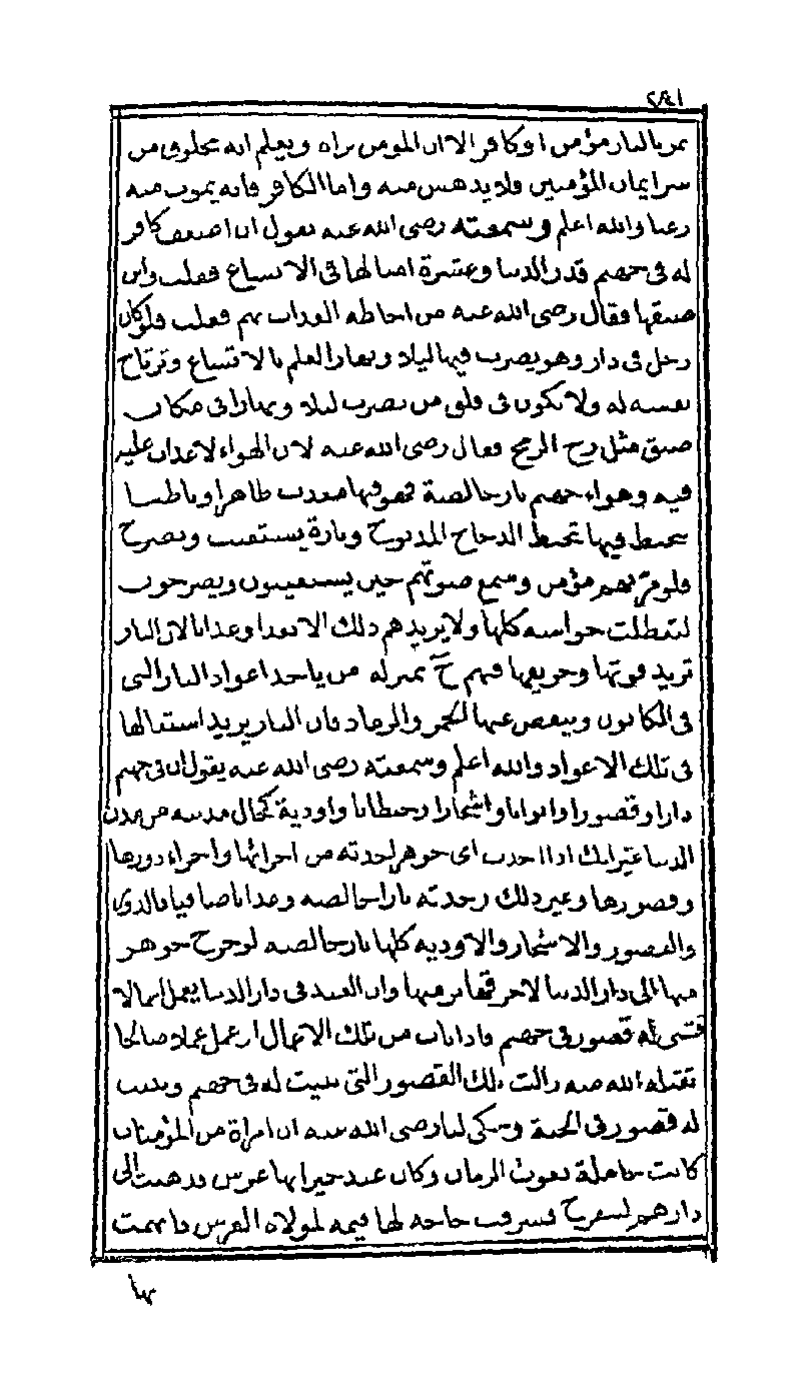 ٢٤١
يمر بالنار مؤمن او كافر الا ان المؤمن يراه ويعلم انه مخلوق من
سر ايمان المؤمنين فلا يدهش منه واما الكافر فانه يموت منه
رعبا والله اعلم وسمعته رضي الله عنه يقول ان اضعف كافر
له في جهنم قدر الدنيا وعشرة امثالها في الاتساع فقلت واين
ضيقها فقال رضي الله عنه من احاطة العذاب بهم فقلت فلو كان
رجل في دار وهو يضرب فيها ليلا ونهارا لعلم بالاتساع وترتاح
نفسه له ولا يكون في قلق من يضرب ليلا ونهارا في مكان
ضيق مثل زج الرمح فقال رضي الله عنه لان الهواء لا عذاب عليه
فيه وهواء جهنم نار خالصة فهو فيها معذب ظاهرا وباطنا
يتخبط فيها تخبط الدجاج المذبوح وتارة يستغيث ويصرخ
فلو مر بهم مؤمن وسمع صوتهم حين يستغيثون ويصرخون
لتعطلت حواسه كلها ولا يزيدهم ذلك الا بعدا وعذابا لان النار
تزيد قوتها وحريقها فيهم ح بمنزلة من ياخذ اعواد النار التي
في الكانون وينفض عنها الجمر والرماد فان النار يزيد اشتعالها
في تلك الاعواد والله اعلم وسمعته رضي الله عنه يقول ان في جهنم
دارا وقصورا وابوابا واشجارا وحيطانا واودية كحال مدينة من مدن
الدنيا غير انك اذا اخذت اي جوهر اخذته من اجزائها واجزاء دورها
وقصورها وغير ذلك وجدته نارا خالصة وعذابا صافيا فالدور
والقصور والاشجار والاودية كلها نار خالصة لو خرج جوهر
منها الى دار الدنيا لاحرقها وان العبد في دار الدنيا يعمل اعمالا
فتبنى له قصور في جهنم فاذا تاب من تلك الاعمال او عمل عملا صالحا
تقبله الله منه زالت تلك القصور التي بنيت له في جهنم وبنيت
له قصور في الجنة وحكى لنا رضي الله عنه ان امراة من المؤمنات
كانت حاملة بغوث الزمان وكان عند جيرانها عرس فذهبت الى
دارهم لتفرح فسرقت حاجة لها قيمة لمولاة العرس فاتهمت
بها